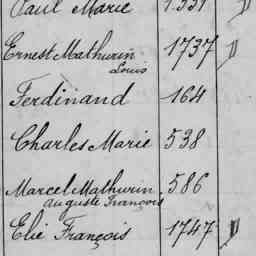 Paul Marie 1.331
Ernest Mathurin 1737 "
Louis
Ferdinand 164
Charles Marie 538
Marcel Mathurin 586
Auguste François
Elie François 1747 "